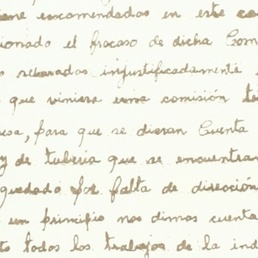 tiene encomendados en este
cionado el fracaso de dicha Com
rebasados injustificadamente
que viniera una comisión
para que se dieran Cuenta
y de tubería que se encuentran
quedado por falta de dirección
en principio nos dimos cuenta
todos los trabajos de la ind